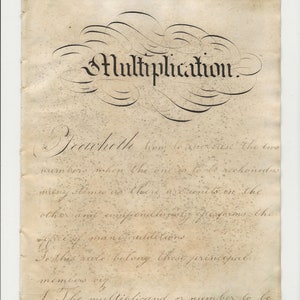 Multiplication.
Teacheth how to increase the two
numbers when the one is to be reckoned a
many times as there are units in the
other and compendiously performs the
office of many additions
To this rule belong three principal
members viz
1 The multiplicand or number to be